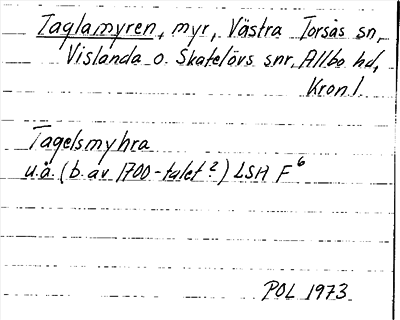 Taglamyren, myr, Västra Torsås sn,
Vislanda o. Skatelövs snr, Allbo hd,
Kron l.
Tagelsmyhra
u.å. (b. av 1700-talet ?) LSH F 6
POL 1973